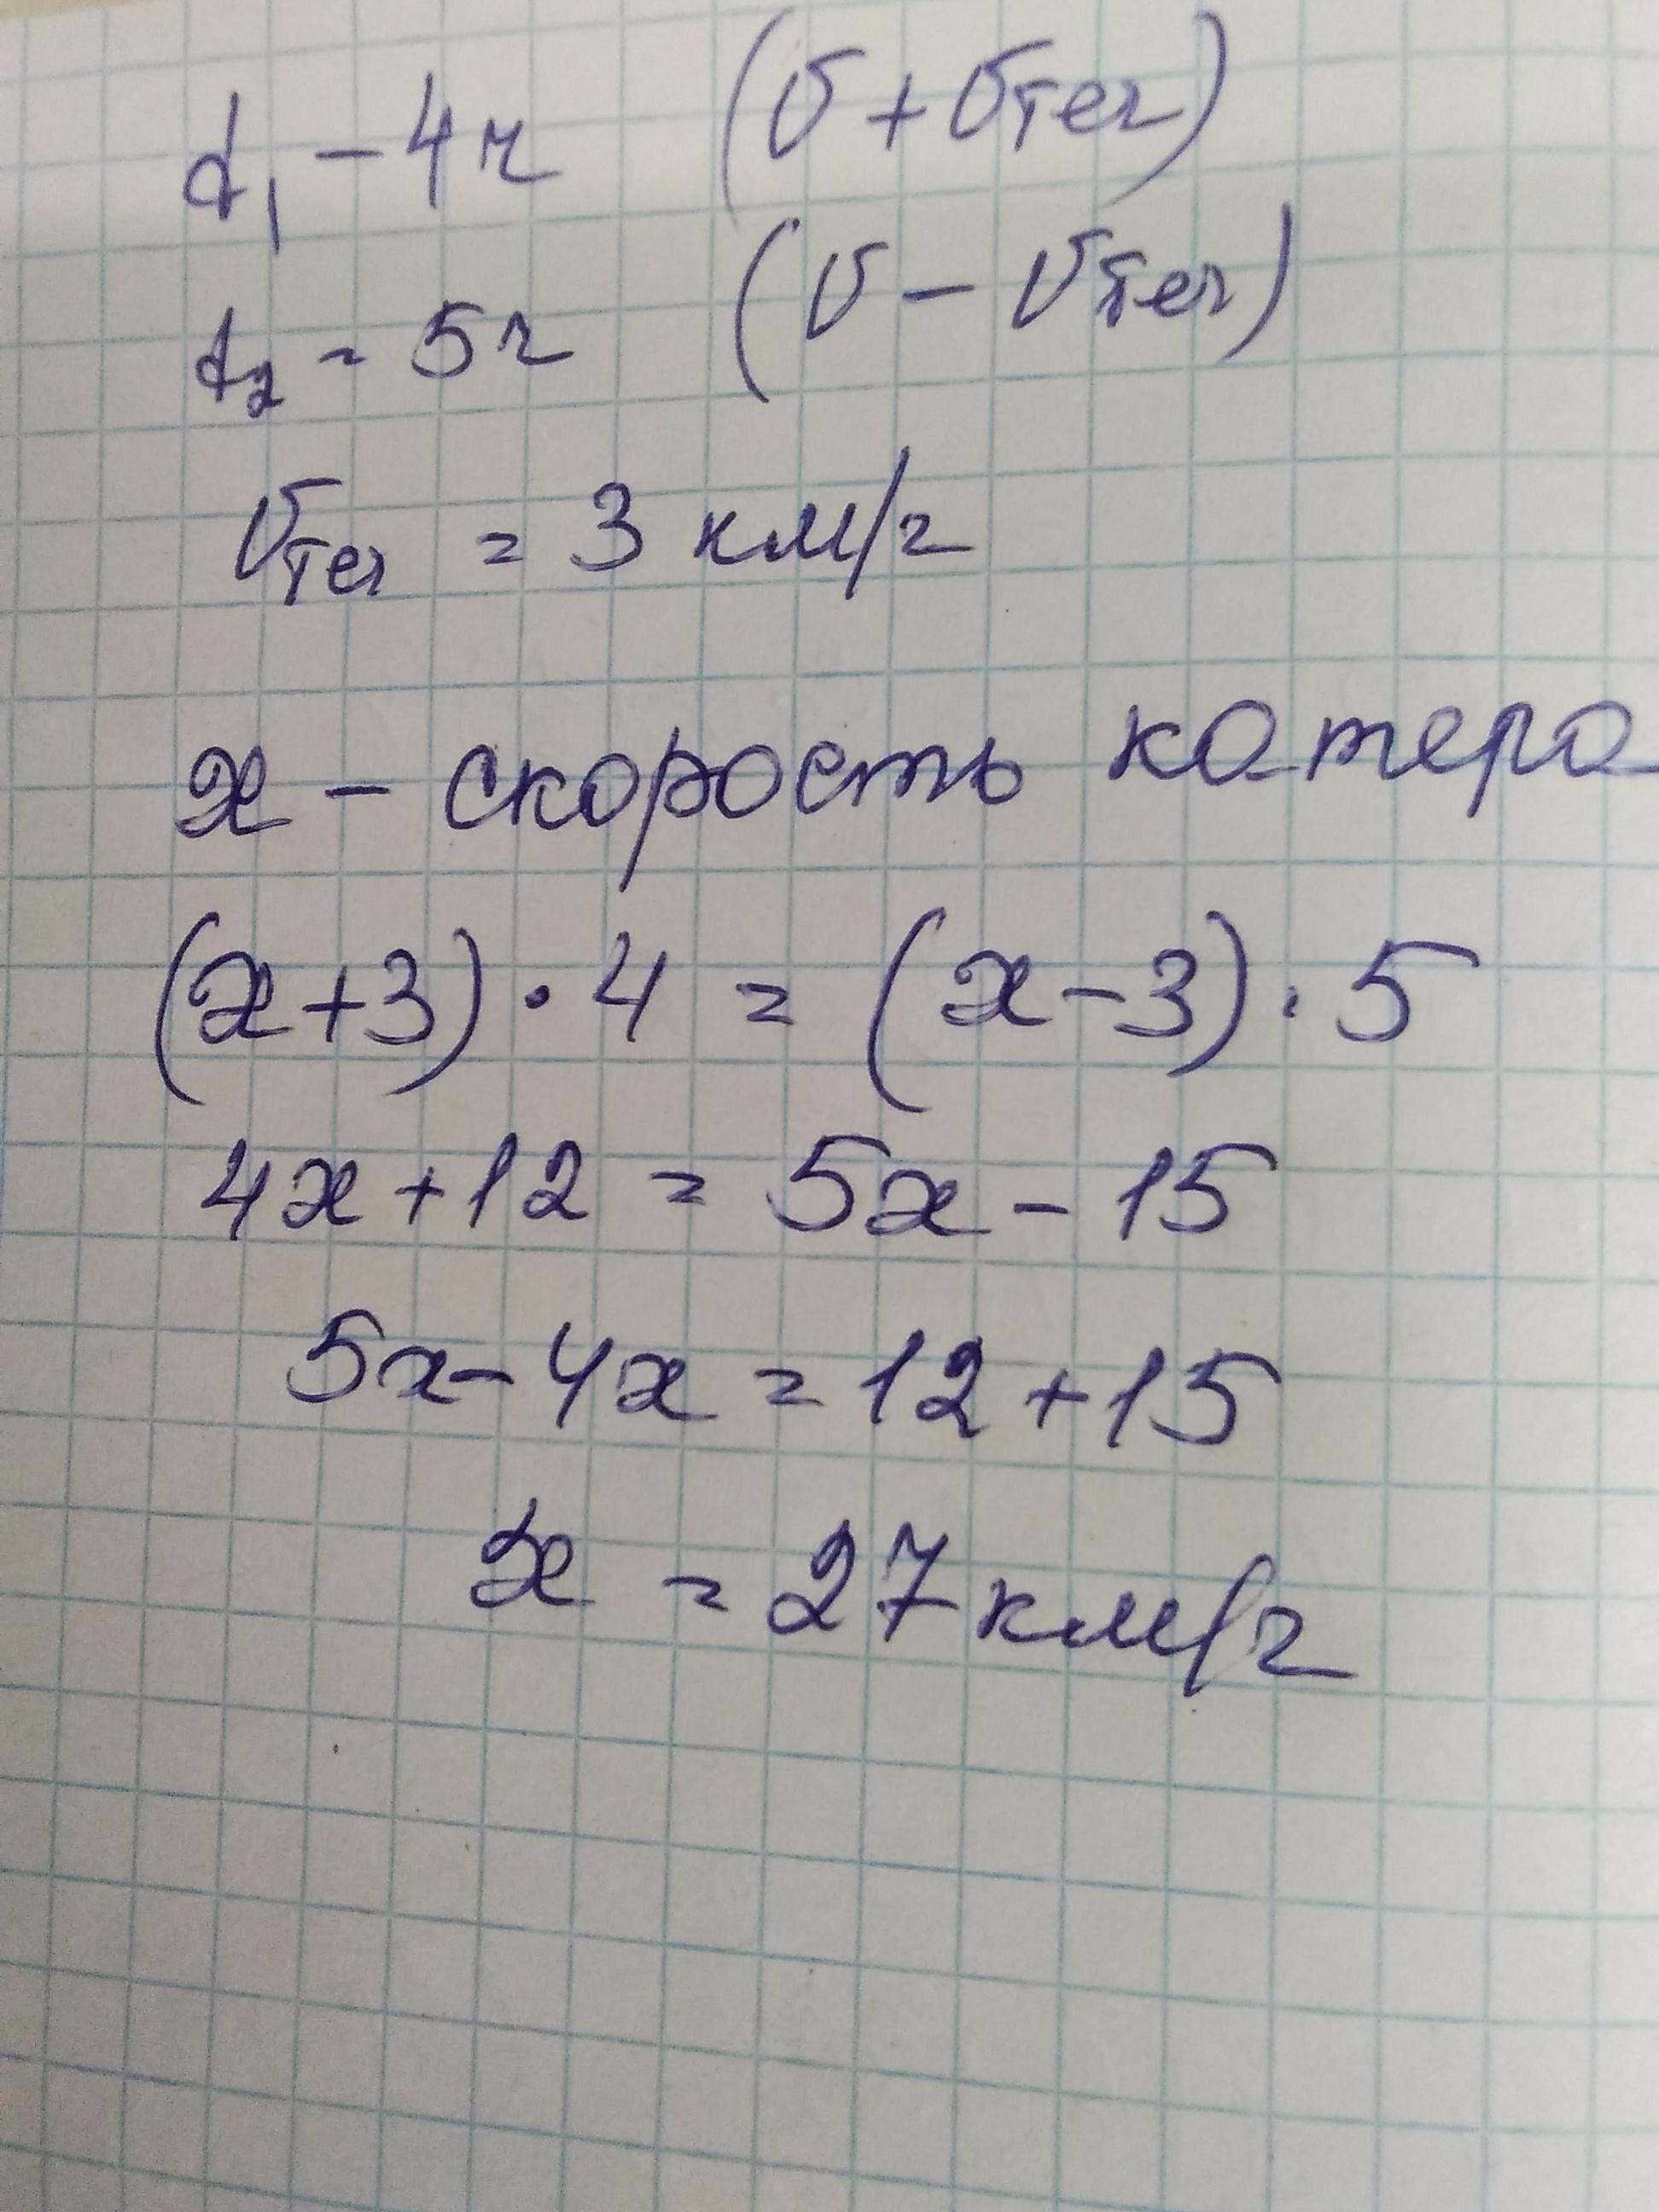 t₁ - 4ч (v + vтеч)
t₂ = 5ч (v - vтеч)
vтеч = 3 км/ч
x - скорость катера
(x+3)·4 = (x-3)·5
4x+12 = 5x-15
5x-4x = 12+15
x = 27 км/ч